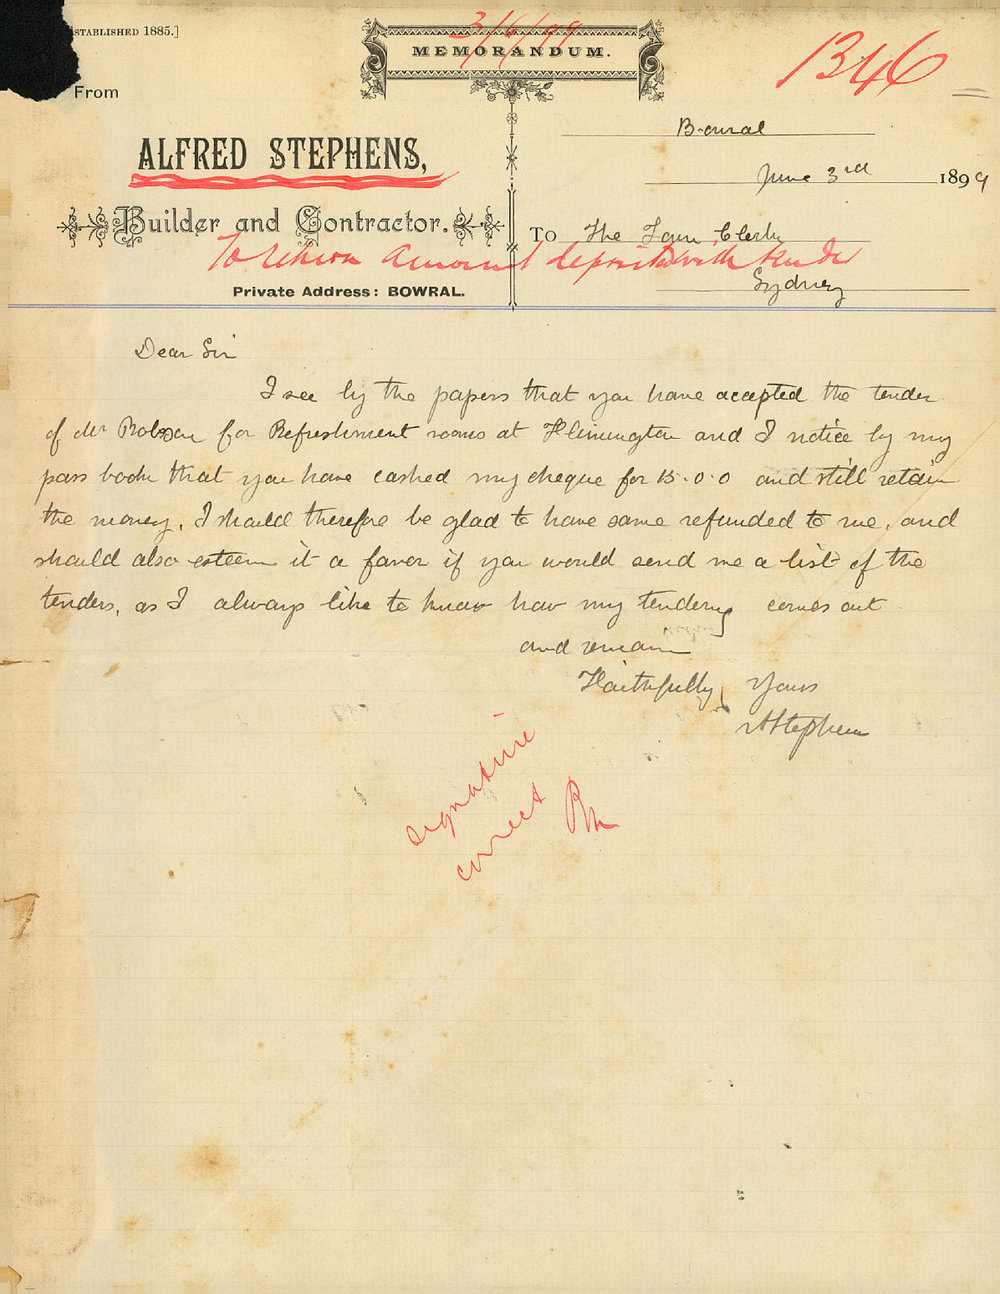 ESTABLISHED 1885.]
3/6/99
MEMORANDUM.
1346
From
Bowral
ALFRED STEPHENS,
June 3rd 1899
Builder and Contractor.
To The Town Clerk
To return Amount deposited with tender
Sydney
Private Address: BOWRAL.
Dear Sir
I see by the papers that you have accepted the tender
of Mr Robson for Refreshment rooms at Flemington and I notice by my
pass book that you have cashed my cheque for 15.0.0 and still retain
the money, I should therefore be glad to have same refunded to me, and
should also esteem it a favor if you would send me a list of the
tenders, as I always like to know how my tendering comes out
and remain
Faithfully Yours
A Stephens
signature
correct